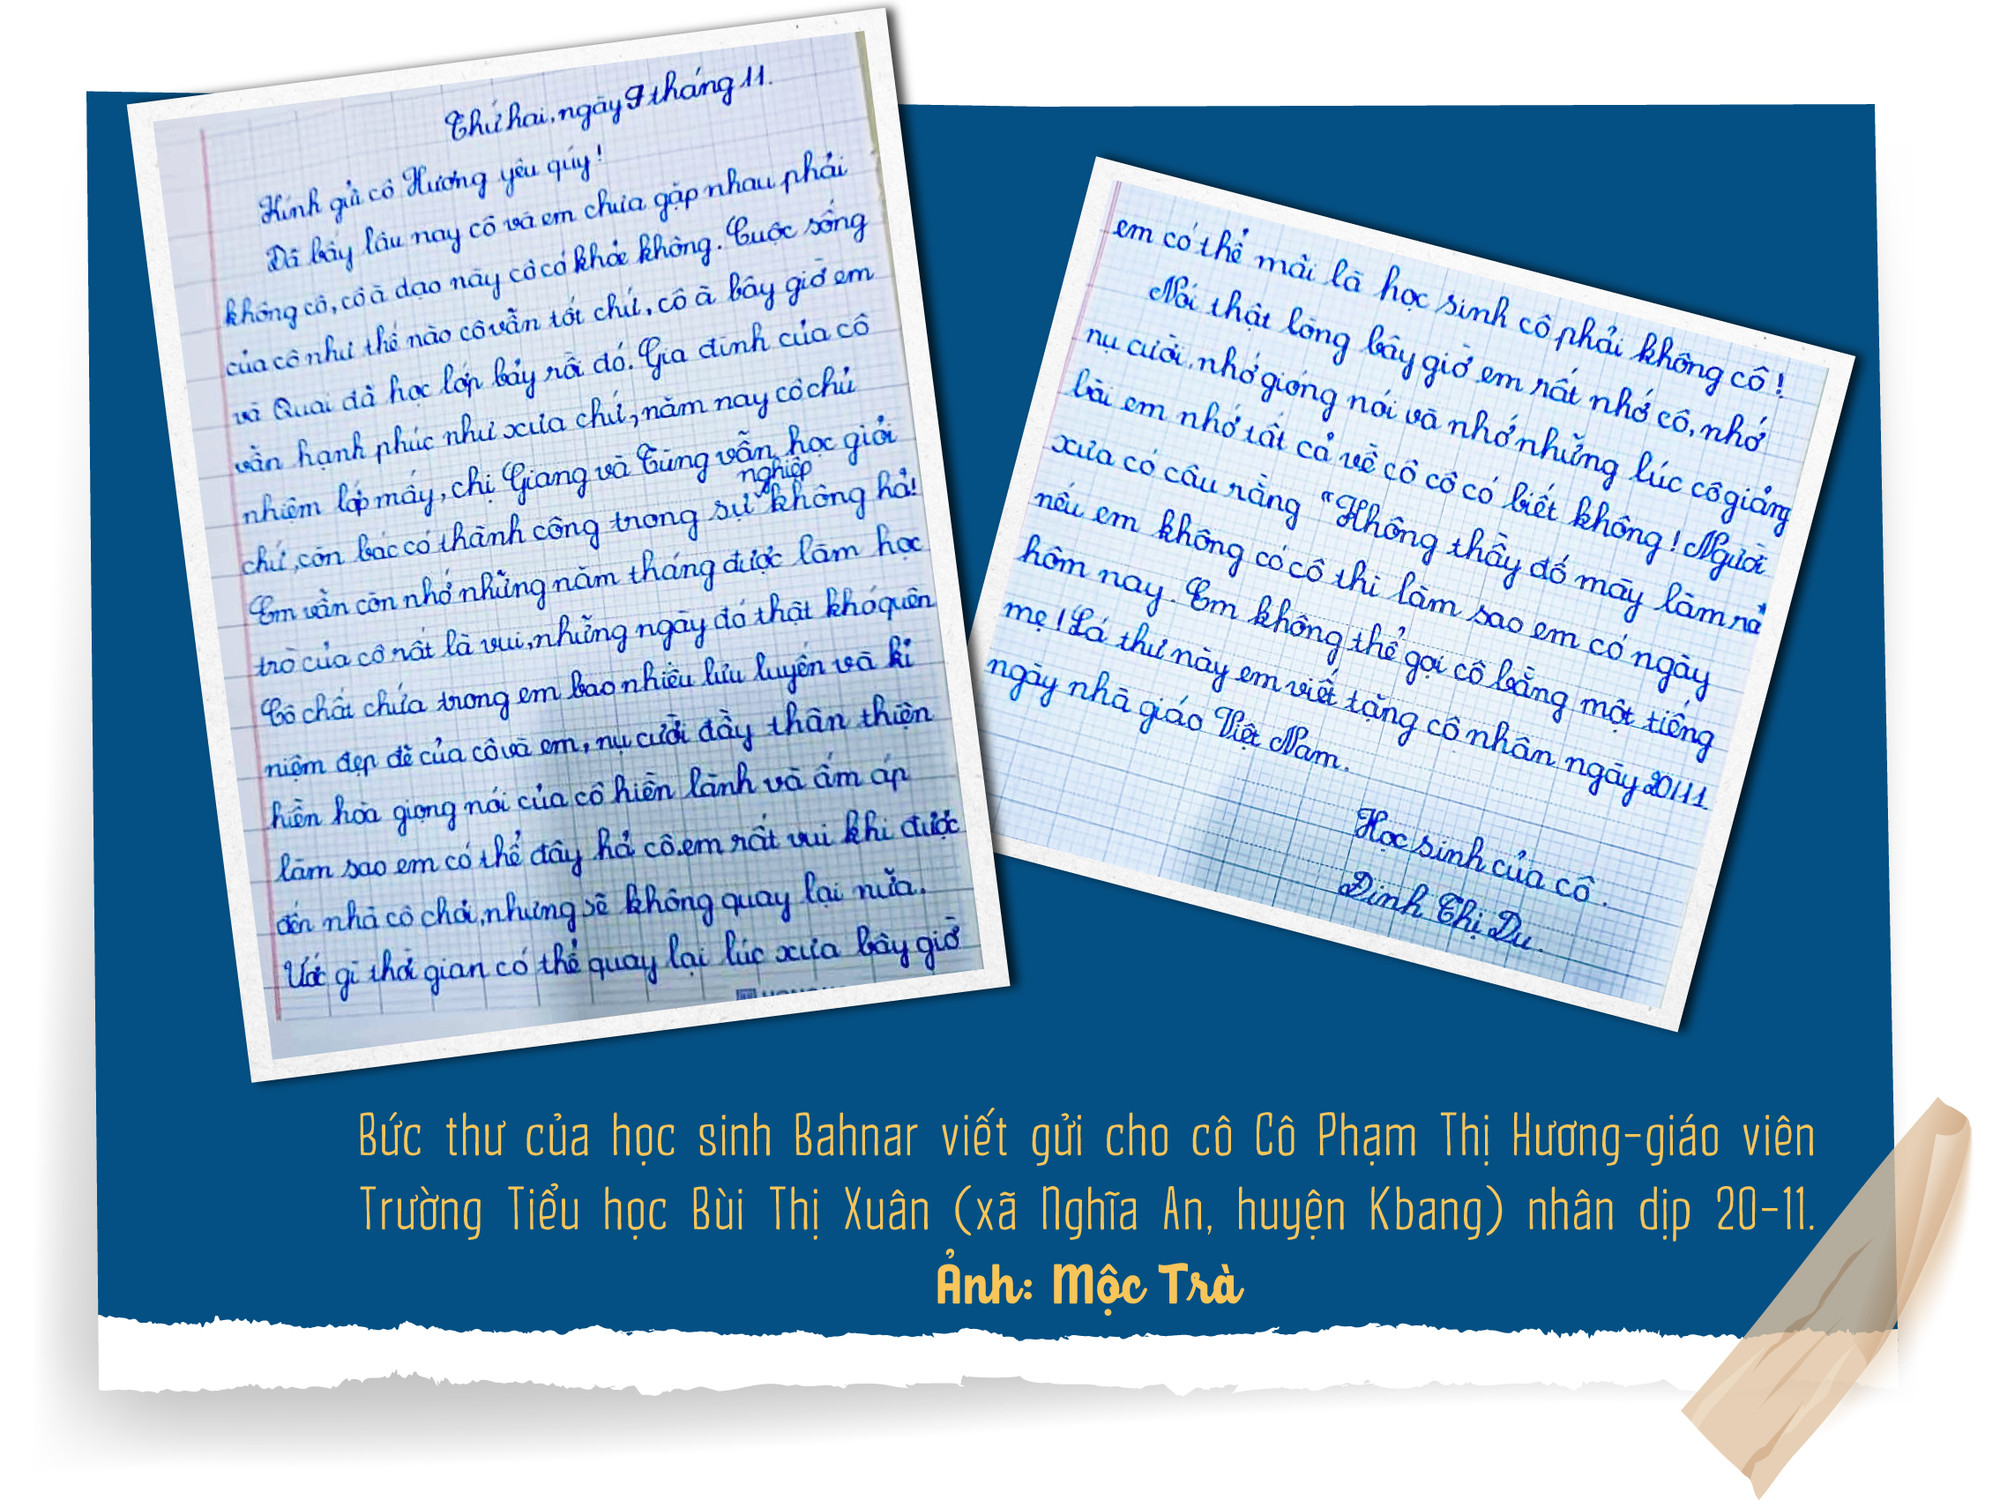 Thứ hai, ngày 9 tháng 11.
Kính gửi cô Hương yêu qúy!
Đã bấy lâu nay cô và em chưa gặp nhau phải
không cô, cô à dạo này cô có khỏe không. Cuộc sống
của cô như thế nào cô vẫn tốt chứ, cô à bây giờ em
và Quai đã học lớp bảy rồi đó. Gia đình của cô
vẫn hạnh phúc như xưa chứ, năm nay cô chủ
nhiệm lớp mấy, chị Giang và Tùng vẫn học giỏi
chứ, còn bác có thành công trong sự nghiệp không hả!
Em vẫn còn nhớ những năm tháng được làm học
trò của cô rất là vui, những ngày đó thật khó quên
Cô chất chứa trong em bao nhiêu lưu luyến và kỉ
niệm đẹp đẽ của cô và em, nụ cười đầy thân thiện
hiền hòa giọng nói của cô hiền lành và ấm áp
làm sao em có thể đây hả cô. em rất vui khi được
đến nhà cô chơi, nhưng sẽ không quay lại nữa.
Ước gì thời gian có thể quay lại lúc xưa bây giờ
em có thể mãi là học sinh cô phải không cô!
Nói thật lòng bây giờ em rất nhớ cô, nhớ
nụ cười, nhớ giọng nói và nhớ những lúc cô giảng
bài em nhớ tất cả về cô cô có biết không! Người
xưa có câu rằng "Không thầy đố mày làm nả
nếu em không có cô thì làm sao em có ngày
hôm nay. Em không thể gọi cô bằng một tiếng
mẹ! Lá thư này em viết tặng cô nhân ngày 20/11
ngày nhà giáo Việt Nam.
Học sinh của cô.
Đinh Thị Du.
Bức thư của học sinh Bahnar viết gửi cho cô Cô Phạm Thị Hương-giáo viên
Trường Tiểu học Bùi Thị Xuân (xã Nghĩa An, huyện Kbang) nhân dịp 20-11.
Ảnh: Mộc Trà